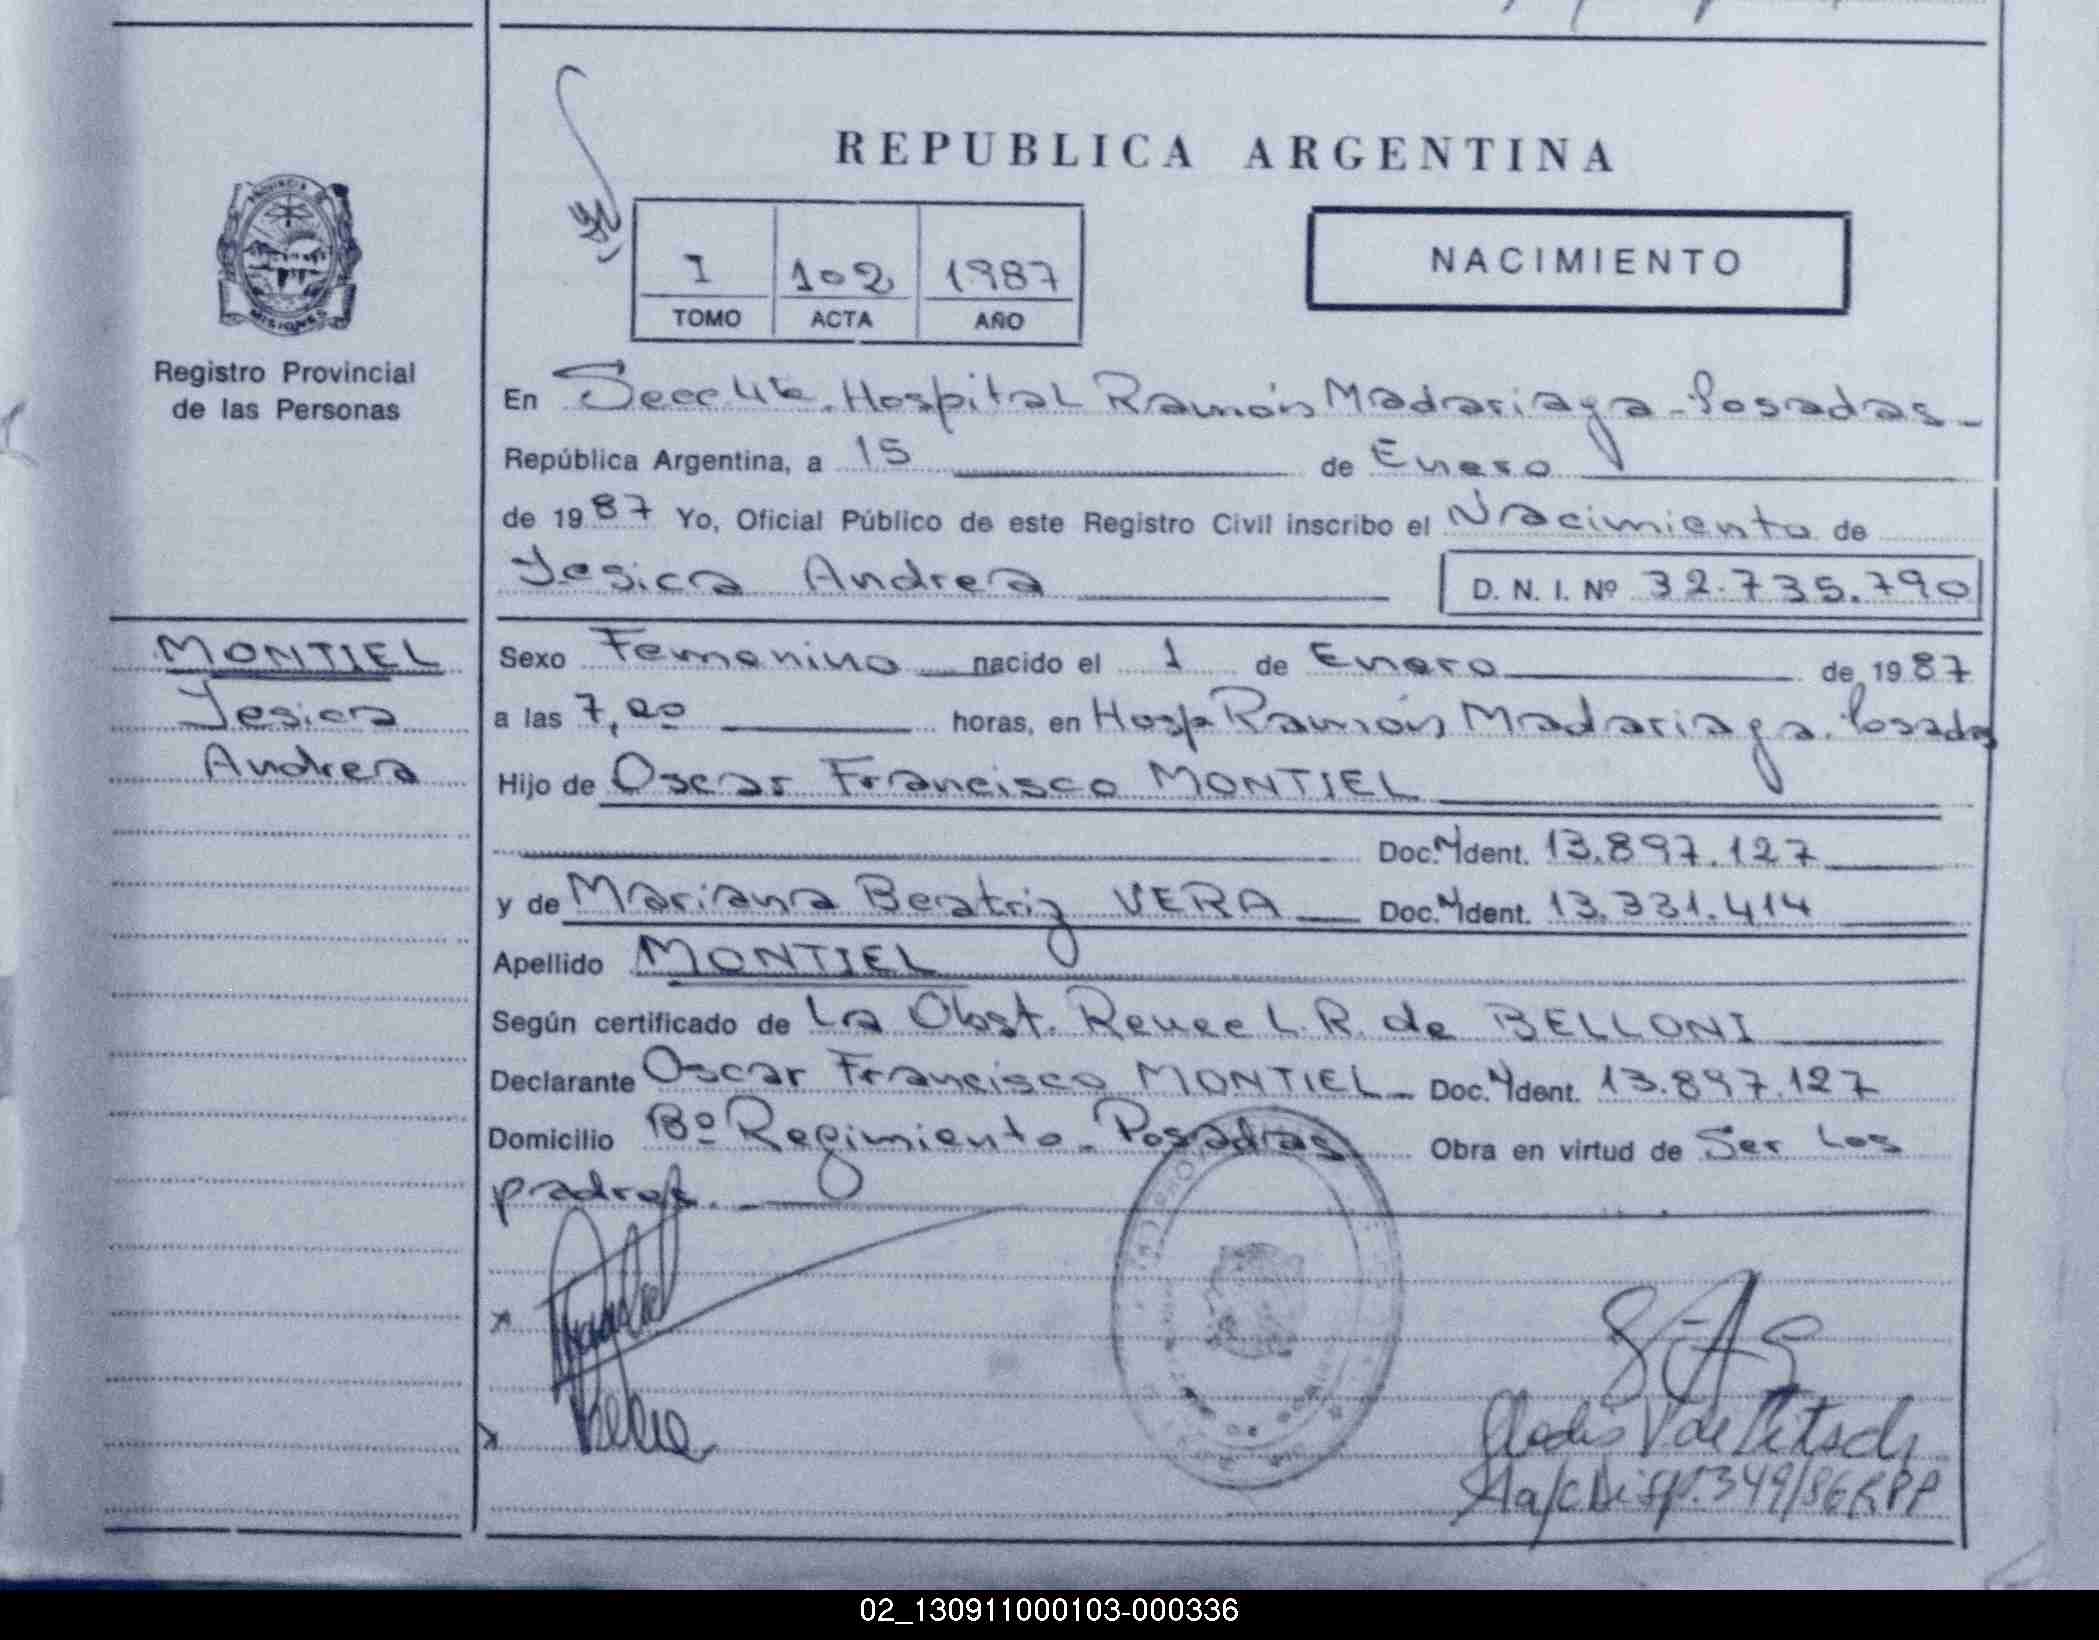 REPUBLICA ARGENTINA
PROVINCIA
MISIONES
I 102 1987
TOMO ACTA AÑO
NACIMIENTO
Registro Provincial
de las Personas
En Secc 4ta. Hospital Ramón Madariaga - Posadas -
República Argentina, a 15 de Enero
de 1987 Yo, Oficial Público de este Registro Civil inscribo el Nacimiento de
Yesica Andrea D. N. I. Nº 32.735.790
MONTIEL
Yesica
Andrea
Sexo Femenino nacido el 1 de Enero de 1987
a las 7,00 horas, en Hosp Ramón Madariaga. Posadas
Hijo de Oscar Francisco MONTIEL
Doc. Ident. 13.897.127
y de Mariana Beatriz VERA Doc. Ident. 13.331.414
Apellido MONTIEL
Según certificado de La Obst. Renee L. R. de BELLONI
Declarante Oscar Francisco MONTIEL Doc. Ident. 13.897.127
Domicilio Bº Regimiento - Posadas Obra en virtud de Ser los
padres.
de
A/c Disp. 349/86 RPP
02_130911000103-000336